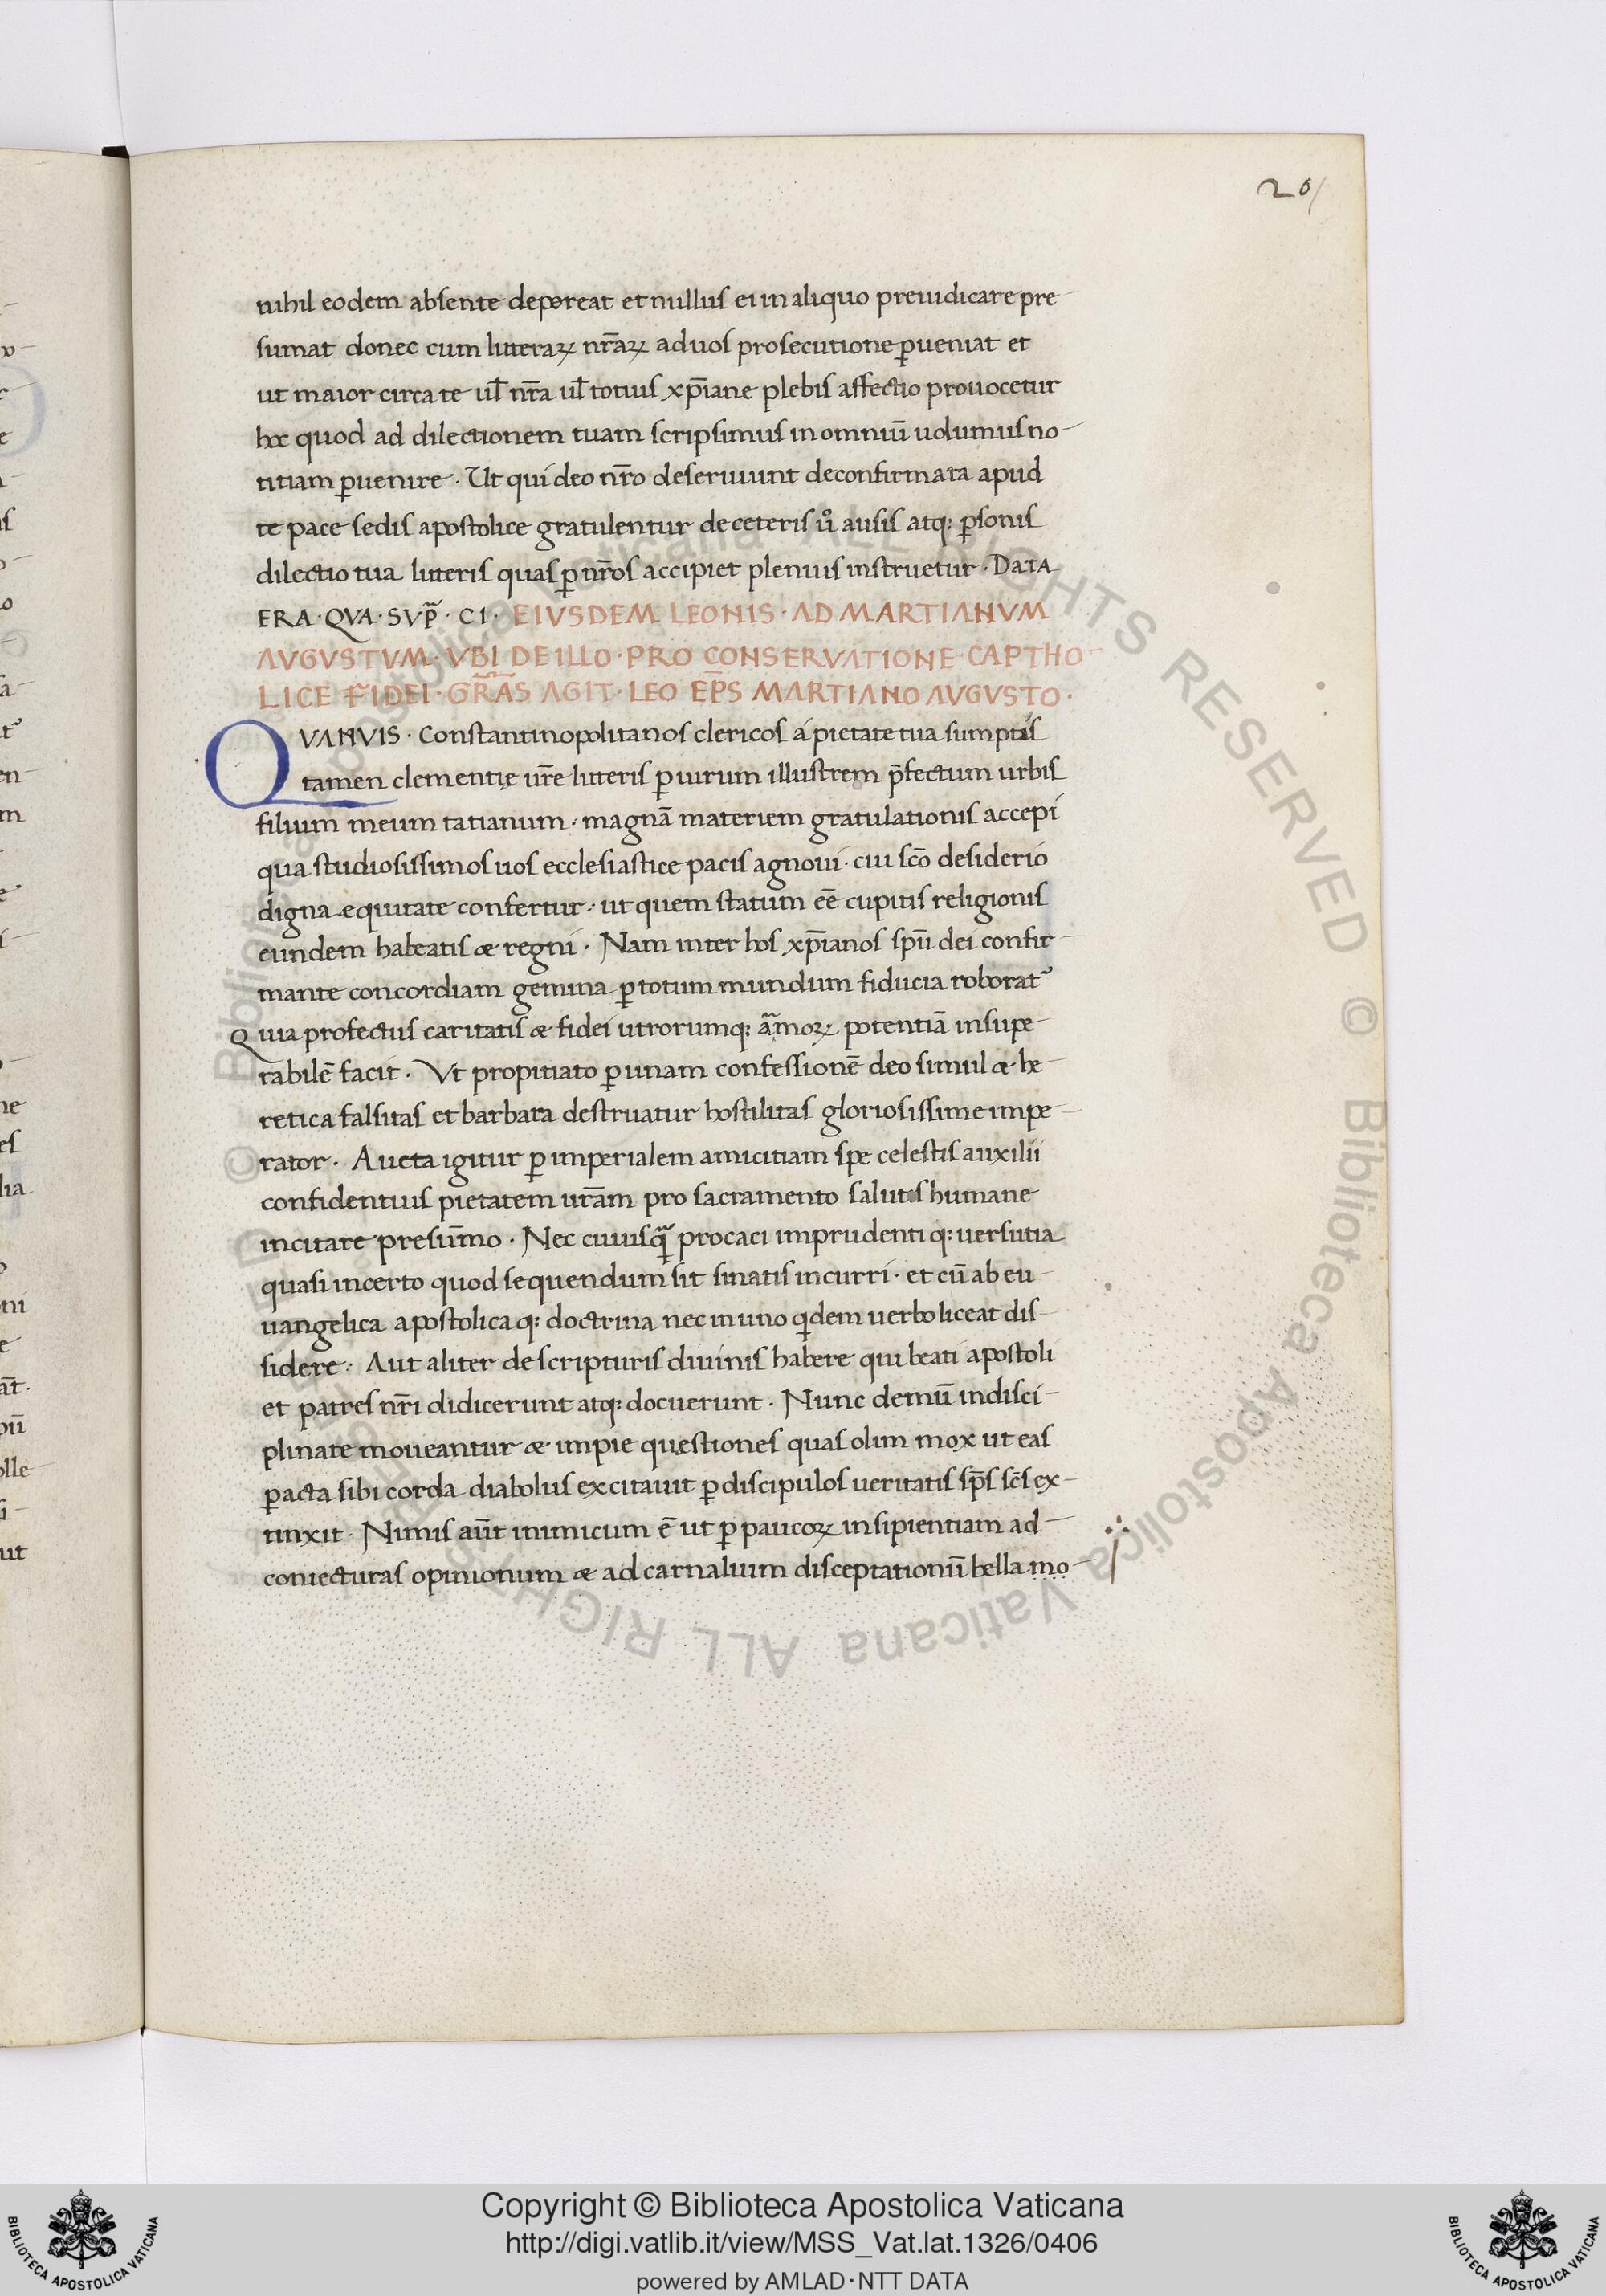 201
nihil eodem absente depereat et nullus ei in aliquo preiudicare pre
sumat donec cum literaꝝ nr̄aꝝ ad uos prosecutione ꝑueniat et
ut maior circa te ul̄ nr̄a ul̄ totius xp̄iane plebis affectio prouocetur
hoc quod ad dilectionem tuam scripsimus in omniū uolumus no
titiam ꝑuenire · Ut qui deo nr̄o deseruiunt de confirmata apud
te pace sedis apostolice gratulentur de ceteris uͦ ausis atq: ꝑsonis
dilectio tua literis quas ꝑ nr̄os accipiet plenius instruetur · DATA
ERA · QVA · SVP̄ · CI · EIVSDEM LEONIS · AD MARTIANVM
AVGVSTVM · VBI DE ILLO · PRO CONSERVATIONE · CAPTHO
LICE FIDEI · GR̄AS AGIT · LEO EP̄S MARTIANO AVGVSTO ·
QVANVIS · Constantinopolitanos clericos á pietate tua sumptis
tamen clementię ur̄e literis ꝑ uirum illustrem p̄fectum urbis
filium meum tatianum · magnā materiem gratulationis accepi
qua studiosissimos uos ecclesiastice pacis agnoui · cui sc̄o desiderio
digna equitate confertur · ut quem statum eē cupitis religionis
eundem habeatis æ regni · Nam inter hos xp̄ianos sp̄ū dei confir
mante concordiam gemina ꝑ totum mundum fiducia roborat᷑
Quia profectus caritatis æ fidei utrorumq: amoꝝ potentiā insupe
rabilē facit · Vt propitiato ꝑ unam confessionē deo simul æ he
retica falsitas et barbara destruatur hostilitas gloriosissime impe
rator · Aucta igitur ꝑ imperialem amicitiam spe celestis auxilii
confidentius pietatem ur̄am pro sacramento salutis humane
incitare presum̄o · Nec cuiusq̄ procaci imprudenti q: uersutia
quasi incerto quod sequendum sit sinatis incurri · et cū ab eu
uangelica apostolica q: doctrina nec in uno qͥdem uerbo liceat dis
sidere · Aut aliter de scripturis diuinis habere qui beati apostoli
et patres nr̄i didicerunt atq: docuerunt · Nunc demū indisci
plinate moueantur æ impie quęstiones quas olim mox ut eas
ꝑ acta sibi corda diabolus excitauit ꝑ discipulos ueritatis sp̄s sc̄s ex
tinxit · Nimis aūt inimicum ē ut ꝑ paucoꝝ insipientiam ad
coniecturas opinionum æ ad carnalium disceptationū bella mo
© Biblioteca Apostolica Vaticana ALL RIGHTS RESERVED
Copyright © Biblioteca Apostolica Vaticana
http://digi.vatlib.it/view/MSS_Vat.lat.1326/0406
powered by AMLAD·NTT DATA
BIBLIOTECA APOSTOLICA VATICANA
BIBLIOTECA APOSTOLICA VATICANA